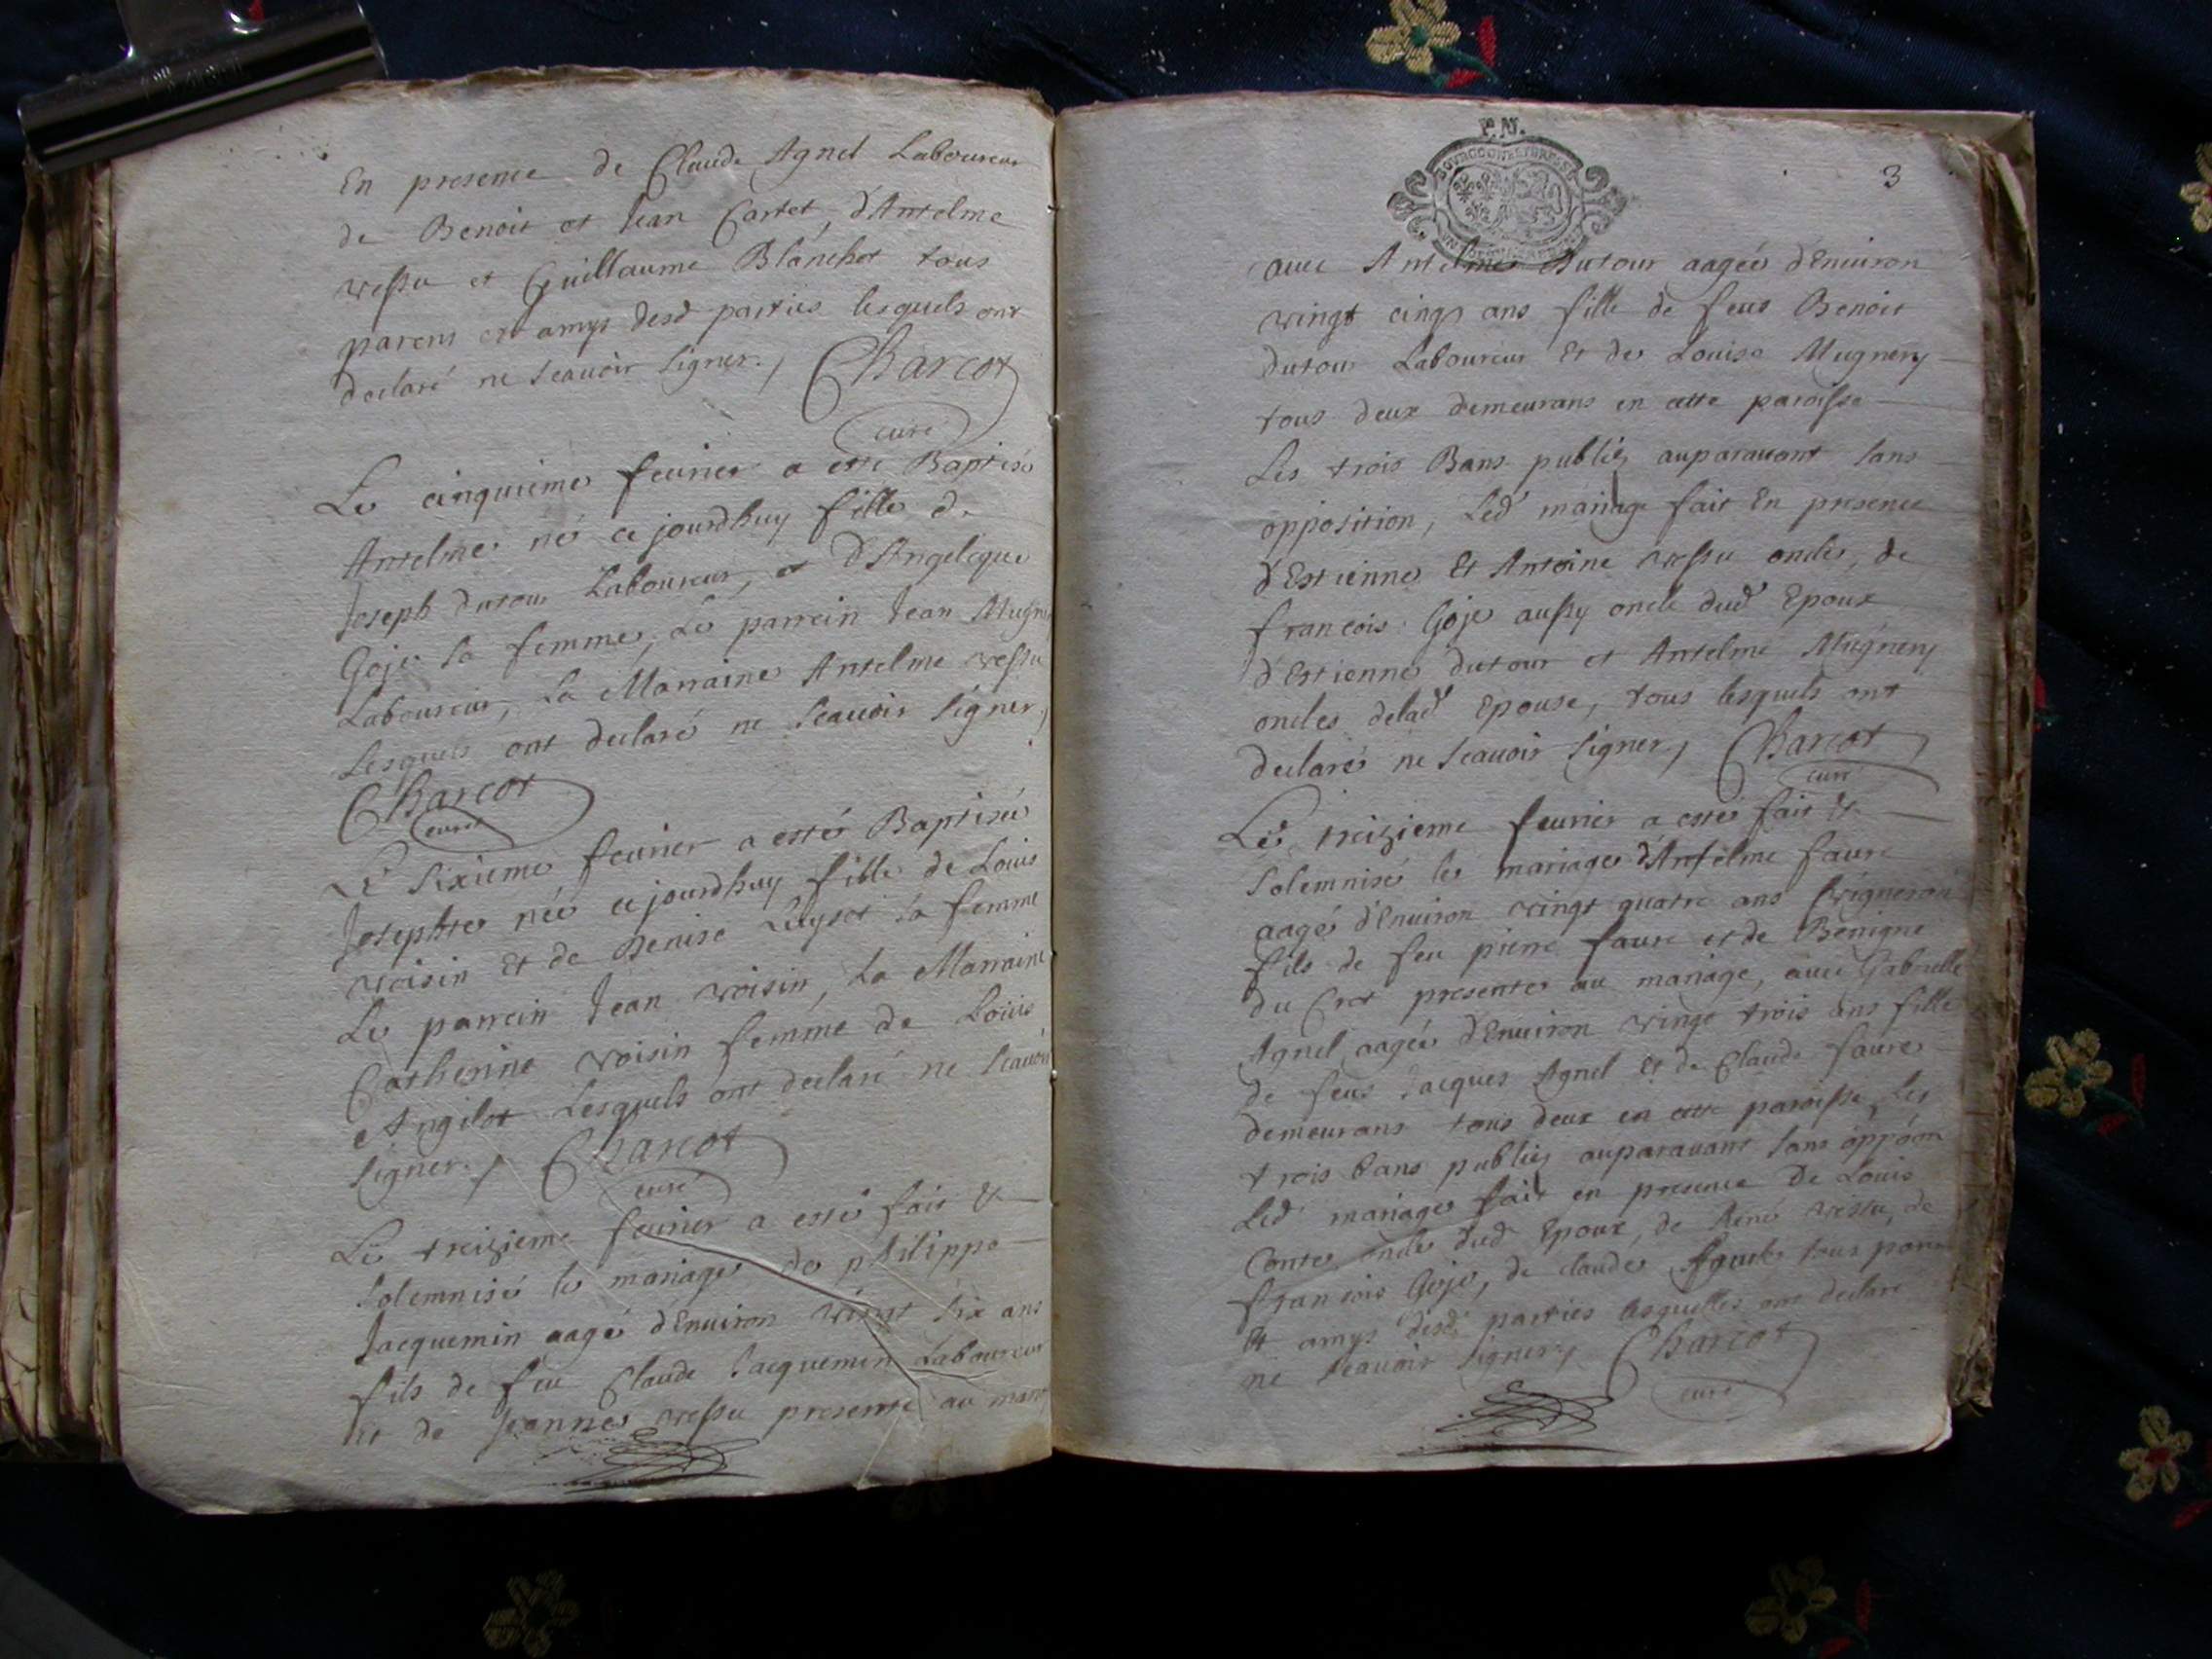 En presence de Claude Agnel Laboureur
de Benoit et Jean Cartet, d'Antelme
vessu et Guillaume Blanchet tous
parens et amys desd parties lesquels ont
declaré ne scauoir signer./ Charcot
curé
Le cinquieme feurier a esté Baptisé
Antelme né ce jourdhuy fille de
Joseph dutour Laboureur, et d'Angelique
Goje sa femme, Le parrein Jean
Laboureur, La Marraine Antelme vessu
Lesquels ont declaré ne scauoir signer,
Charcot
curé
Le sixieme feurier a esté Baptisée
Josephte née ce jourdhuy fille de Louis
voisin Et de Denise sa femme
Le parrein Jean voisin, La Marraine
Catherine voisin femme de Louis
Angilot Lesquels ont declaré ne scauoir
signer./ Charcot
curé
Le treizieme feurier a esté fait &
solemnisé le mariage de philippe
Jacquemin aagé d'Enuiron vingt six ans
fils de feu Claude Jacquemin Laboureur
et de Jeanne vessu presente au
P. N.
3
auec Antelme dutour aagée d'Enuiron
vingt cinq ans fille de feus Benoit
dutour Laboureur Et de Louise Mugnery
tous deux demeurans en cette paroisse
Les trois Bans publiez auparauant sans
opposition, Led mariage fait En presence
d'Estienne Et Antoine vessu oncles, de
francois Goje aussy oncle dud Epoux
d'Estienne dutour et Antelme Mugnery
oncles delad Epouse, tous lesquels ont
declaré ne scauoir signer, Charcot
curé
Le treizieme feurier a esté fait &
solemnisé le mariage d'Antelme faure
aagé d'Enuiron vingt quatre ans vigneron
fils de feu pierre faure et de Benigne
du Crot presente au mariage, auec Gabrielle
Agnel aagée d'Enuiron vingt trois ans fille
de feus Jacques Agnel Et de Claude faure
demeurans tous deux en cette paroisse, Les
trois bans publiez auparauant sans
Led mariage fait en presence De Louis
Conte oncle dud Epoux, de René vessu, de
francois Goje, de claude tous
Et amys desd parties lesquelles ont declaré
ne scauoir signer, Charcot
curé